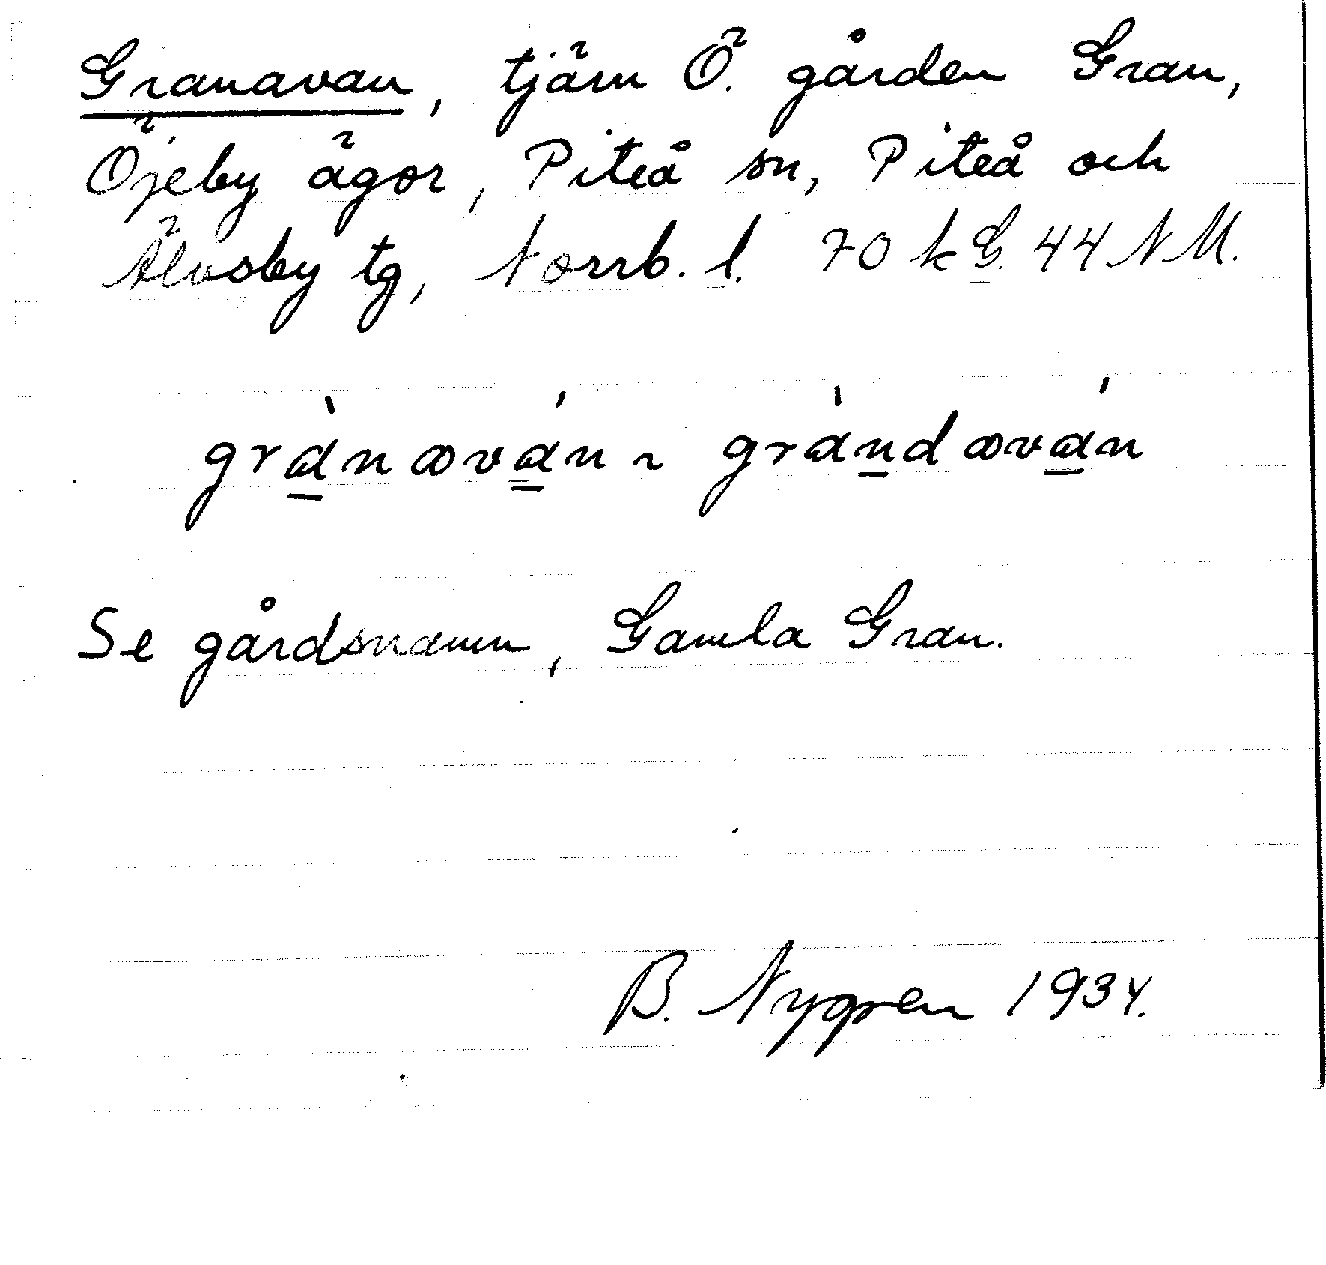 Granavan, tjärn Ö. gården Gran,
Öjeby ägor, Piteå sn, Piteå och
Älvsby tg, Norrb. l. 70 k G. 44 N M.
grànaván ~ gràndaván
Se gårdsnamn, Gamla Gran.
B. Nygren 1934.